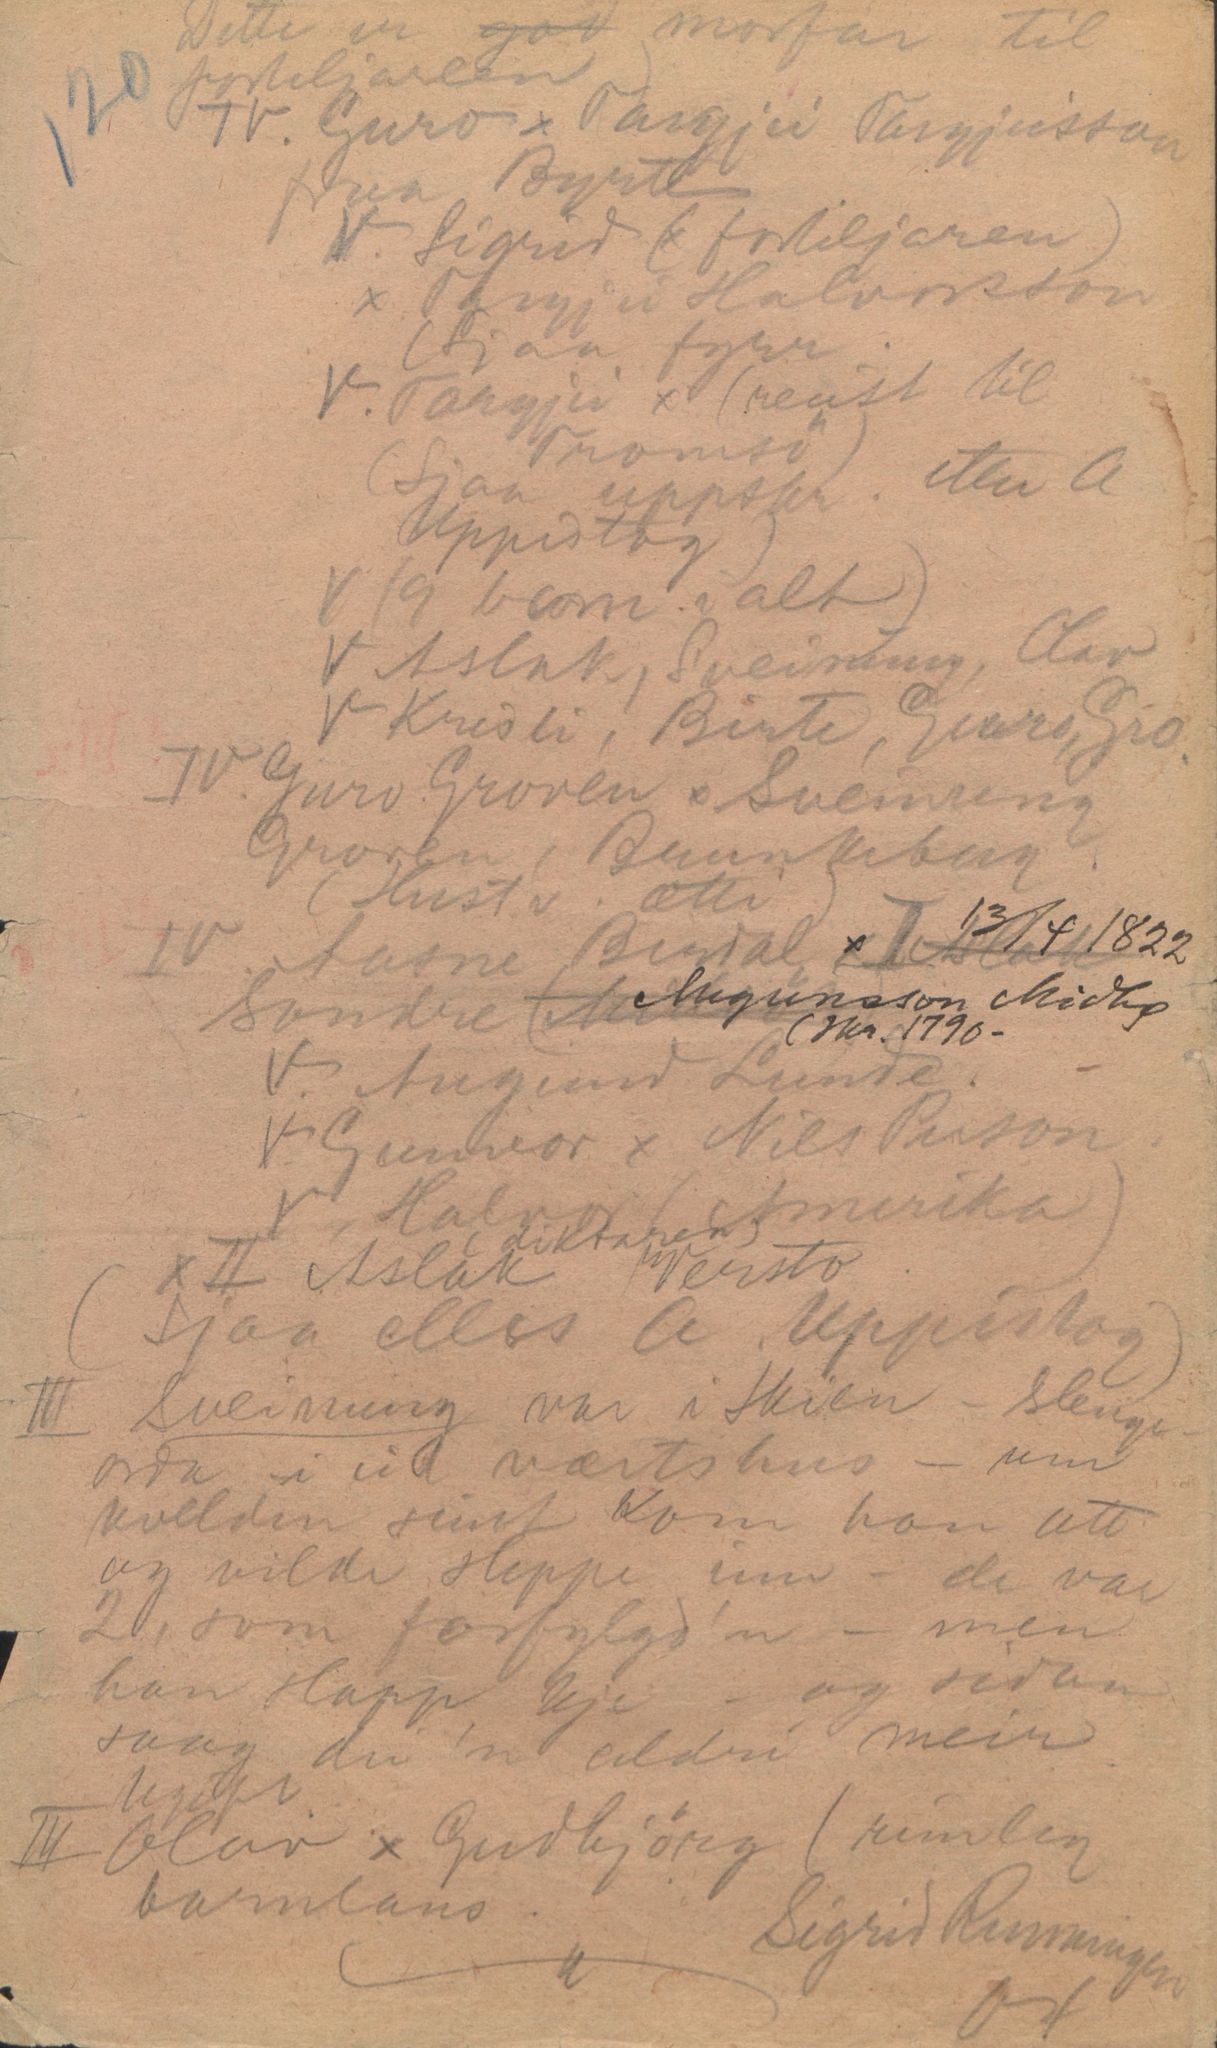 Dette er god morfar til
forteljaren)
120
IV. Guro x Targjei Targjeisson
fraa Byrte
V. Sigrid (x forteljaren)
x Targjei Halvorsson
(Sjaa fyrr.
V. Targjei x (reist til
Tromsö)
(Sjaa uppskr. etter A
Uppistog)
V (9 born i alt)
V Aslak, Sveinung, Olav
V Kresti, Birte, Guro, Gro.
IV. Guro Groven x Sveinung
Groven, Brunkeberg.
(Hust v. ætti)
IV. Aasne Berdal x I Aslak 13/4 1822
Söndre Augunsson Midbø
(Skr. 1790-
V. Augund Lunde. -
V. Gunvor x Nils Person.
V. Halvor (Amerika)
(diktaren)
x II Aslak Versto
(Sjaa elles A Uppistog)
III Sveinung var i Skien - slengde
orda i eit værtshus - um
kvelden seint kom han att
og vilde sleppe inn - de var
2, som forfylgd'n - men
han slapp kje - og sidan
saag dei 'n aldri meir
Ugift.
III Olav x Gudbjörg (rimleg
barnlaus.
Sigrid Runningen